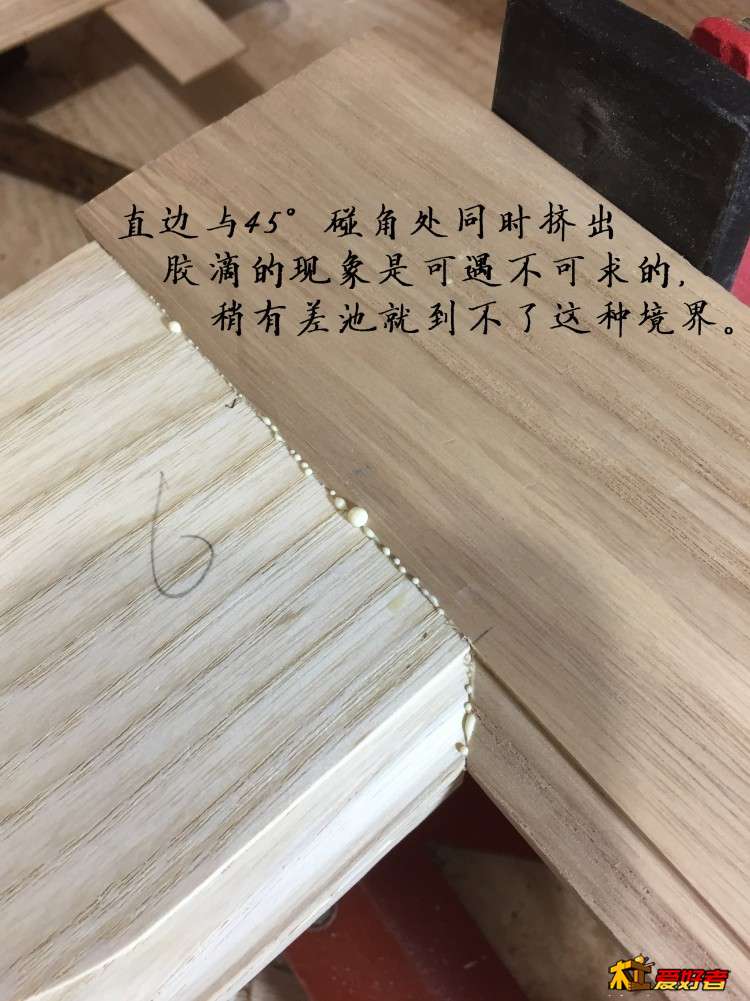 直边与45°碰角处同时挤出
胶滴的现象是可遇不可求的,
稍有差池就到不了这种境界。
6
木工爱好者